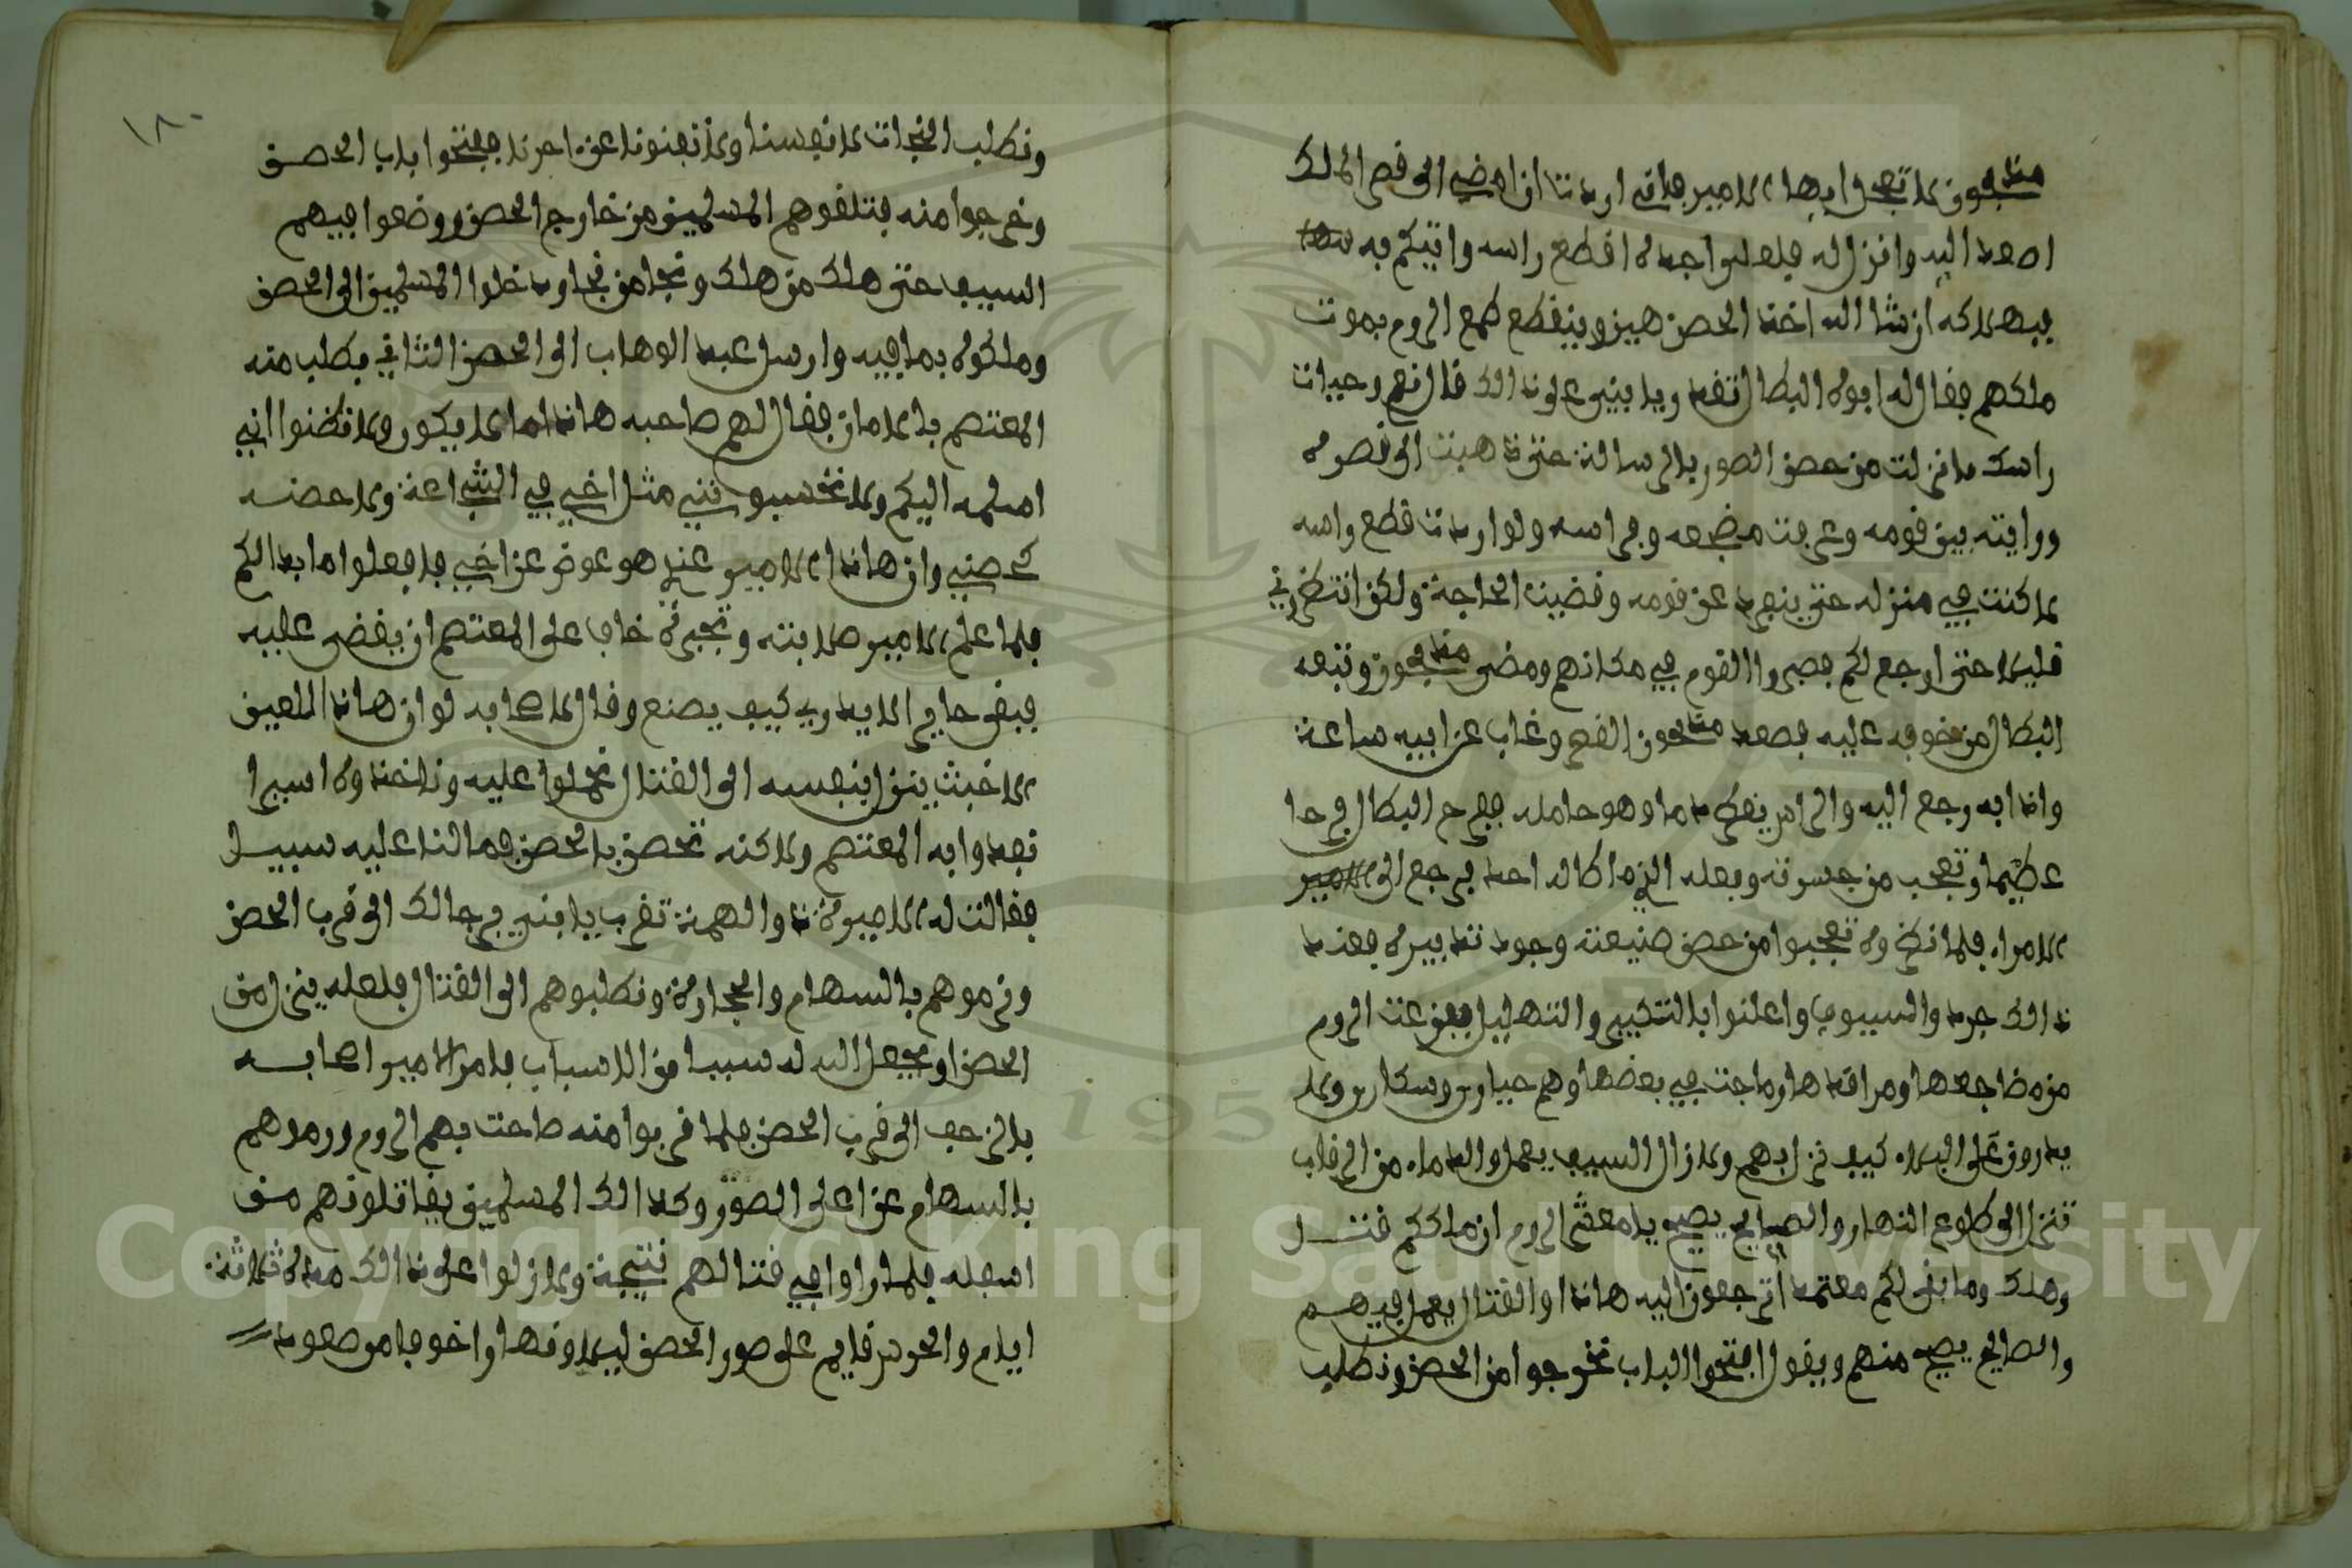 مذبحون لا تعجل ايها الامير فاني اردت ان امضي الى قصر الملك
اصعد اليه وانزل له فلعلي اجده اقطع راسه واتيكم به
فبهلاكه ان شا الله اخذ الحصن هين وينقطع طمع الروم بموت
ملكهم فقال له ابوه البطال تقدر يا بني على ذالك قال نعم وحيات
راسك ما نزلت من حصن الصور بالرسالة حتى ذهبت الى قصره
ورايته بين قومه وعرفت مضجعه وفراسه ولو اردت قطع راسه
لا كنت في منزله حتى ينفرد عن قومه وقضيت الحاجة ولكن انتظروني
قليلا حتى ارجع لكم فصبروا القوم في مكانهم ومضى مذبحون وتبعه
البطال من خوفه عليه فصعد مذبحون القصر وغاب عن ابيه ساعة
واذا به رجع اليه والراس يقطر دما وهو حامله ففرح البطال فرحا
عظيما وتعجب من جسرته وفعله الذي ما طاله احد فرجع الى الامير
الامراء فلما نظروه تعجبوا من حصن صنيعته وجودة تدبيره فعند
ذالك جردوا السيوف واعلنوا بالتكبير والتهليل ففزعت الروم
من مضاجعها ومراقدها وماجت في بعضها وهم حيارى وسكارى ولا
يدرون على البلاء كيف نزل بهم ولا زال السيف يعمل والدماء من الرقاب
تنزل الى طلوع النهار والصايح يصيح يا معشر الروم ان ملككم قتل
وهلك وما بقى لكم معتمد ترجعون اليه هاذا والقتال يعمل فيهم
والصايح يصيح منهم ويقول افتحوا الباب نخرجوا من الحصن ونطلب
١٨٠
ونطلب النجات لانفسنا ولا تفنونا عن اخرنا ففتحوا باب الحصن
وخرجوا منه فتلقوهم المسلمين من خارج الحصن ووضعوا فيهم
السيف حتى هلك من هلك ونجا من نجا ودخلوا المسلمين الى الحصن
وملكوه بما فيه وارسل عبد الوهاب الى الحصن الثاني يطلب منه
المعتصم بالامان فقال لهم صاحبه هاذا ما لا يكون ولا تظنوا اني
اسلمه اليكم ولا تحسبونني مثل اخي في الشجاعة ولا حصنه
كحصني وان هاذا الامير عندي هو عوض عن اخي فافعلوا ما بدالكم
فلما علم الامير صلابته وتجبره خاف على المعتصم ان يقضى عليه
فبقى حاير لا يدري كيف يصنع وقال لاصحابه لو ان هاذا اللعين
الاخبث ينزل بنفسه الى القتال نحملوا عليه وناخذوه اسيرا
نفدوا به المعتصم ولاكنه تحصن بالحصن فما لنا عليه سبيل
فقالت له الاميرة ذو الهمة تقرب يا بني برجالك الى قرب الحصن
ونرموهم بالسهام والحجارة ونطلبوهم الى القتال فلعله ينزل من
الحصن او يجعل الله له سببا من الاسباب فامر الامير اصحابه
بالزحف الى قرب الحصن فلما قربوا منه صاحت بهم الروم ورموهم
بالسهام عن اعلى الصور وكذالك المسلمين يقاتلونهم من
اسفله فلما راوا في قتالهم نتيجة ولا زلوا على ذالك مدة ثلاثة
ايام والحرس قايم على صور الحصن ليلا ونهارا خوفا من صعود